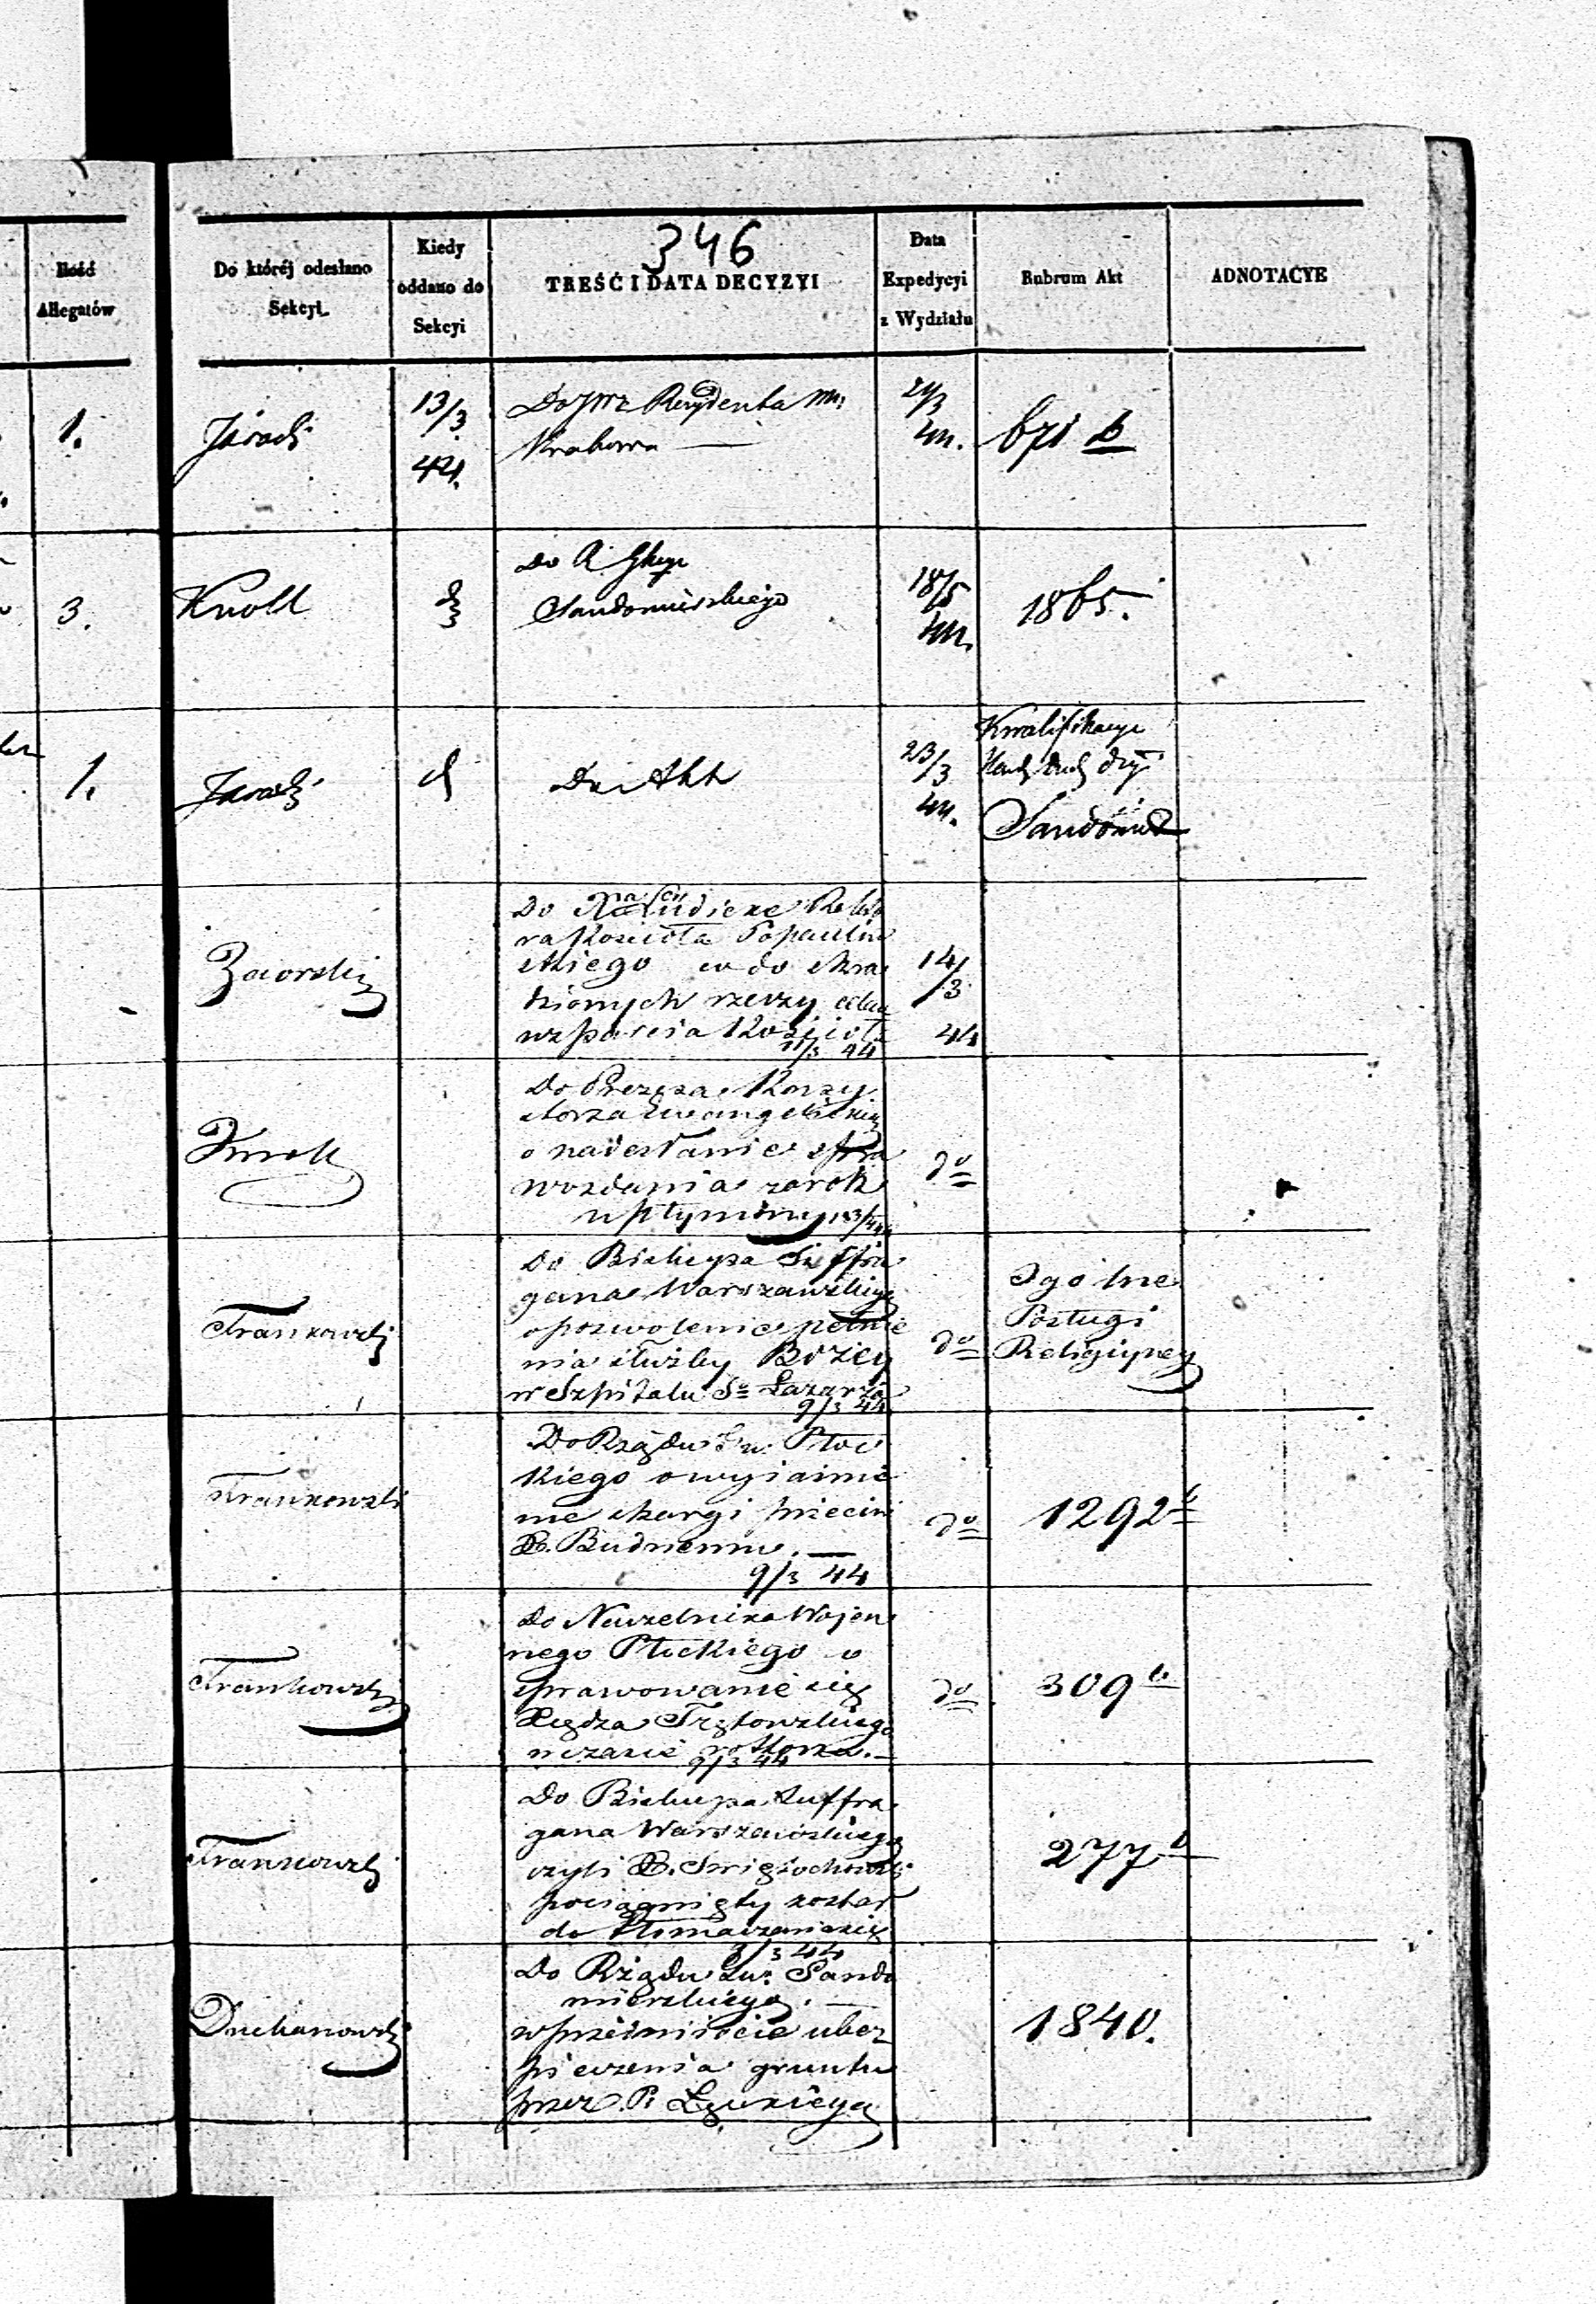 346
Ilość
Allegatów
Do któréj odesłano
Sekcyi.
Kiedy
oddano do
Sekcyi
TREŚĆ I DATA DECYZYI
Data
Expedycyi
z Wydziału
Rubrum Akt
ADNOTACYE
1.
13/3
44.
Do JWz Rezydenta m.
Krakowa —
21/3
44.
671 b
3.
Knoll
Do R. Gbego
Sandomierskiego
18/5
44.
1865.
1.
d
Do Akt
23/3
44.
Kwalifikacye
Sandom
Zaorski
Do Rekto
ra Kościoła Popauliń
skiego co do skra
dzionych rzeczy celem
wsparcia Kościoła
11/3 44
14/3
44
Knoll
Do Prezesa Konsy
storza Ewangelickiego
o nadesłanie spra
wozdania za rok
upłyniony 13/3 44
do
Frankowski
Do Biskupa Suffra
gana Warszawskiego
o pozwolenie pełnie
nia służby Bożey
w Szpitalu So Łazarza
9/3 44
do
Ogólne
Posługi
Religiyney
Frankowski
Do Rządu Gu. Płoc
kiego o wyiaśnie
nie skargi przeciw
X. Budnemu. —
9/3 44
do
1292 b
Frankowski
Do Naczelnika Wojen
nego Płockiego o
sprawowanie się
Księdza
w czasie
9/3 44
do
309 b
Frankowski
Do Biskupa Suffra
gana Warszawskiego
czyli X. Swięsochowski
pociągnięty został
do tłomaczenia się
9/3 44
277 b
Duchanowski
Do Rządu Gu. Sando
mierskiego. —
w przedmiocie ubez
pieczenia gruntu
przez P.
1840.